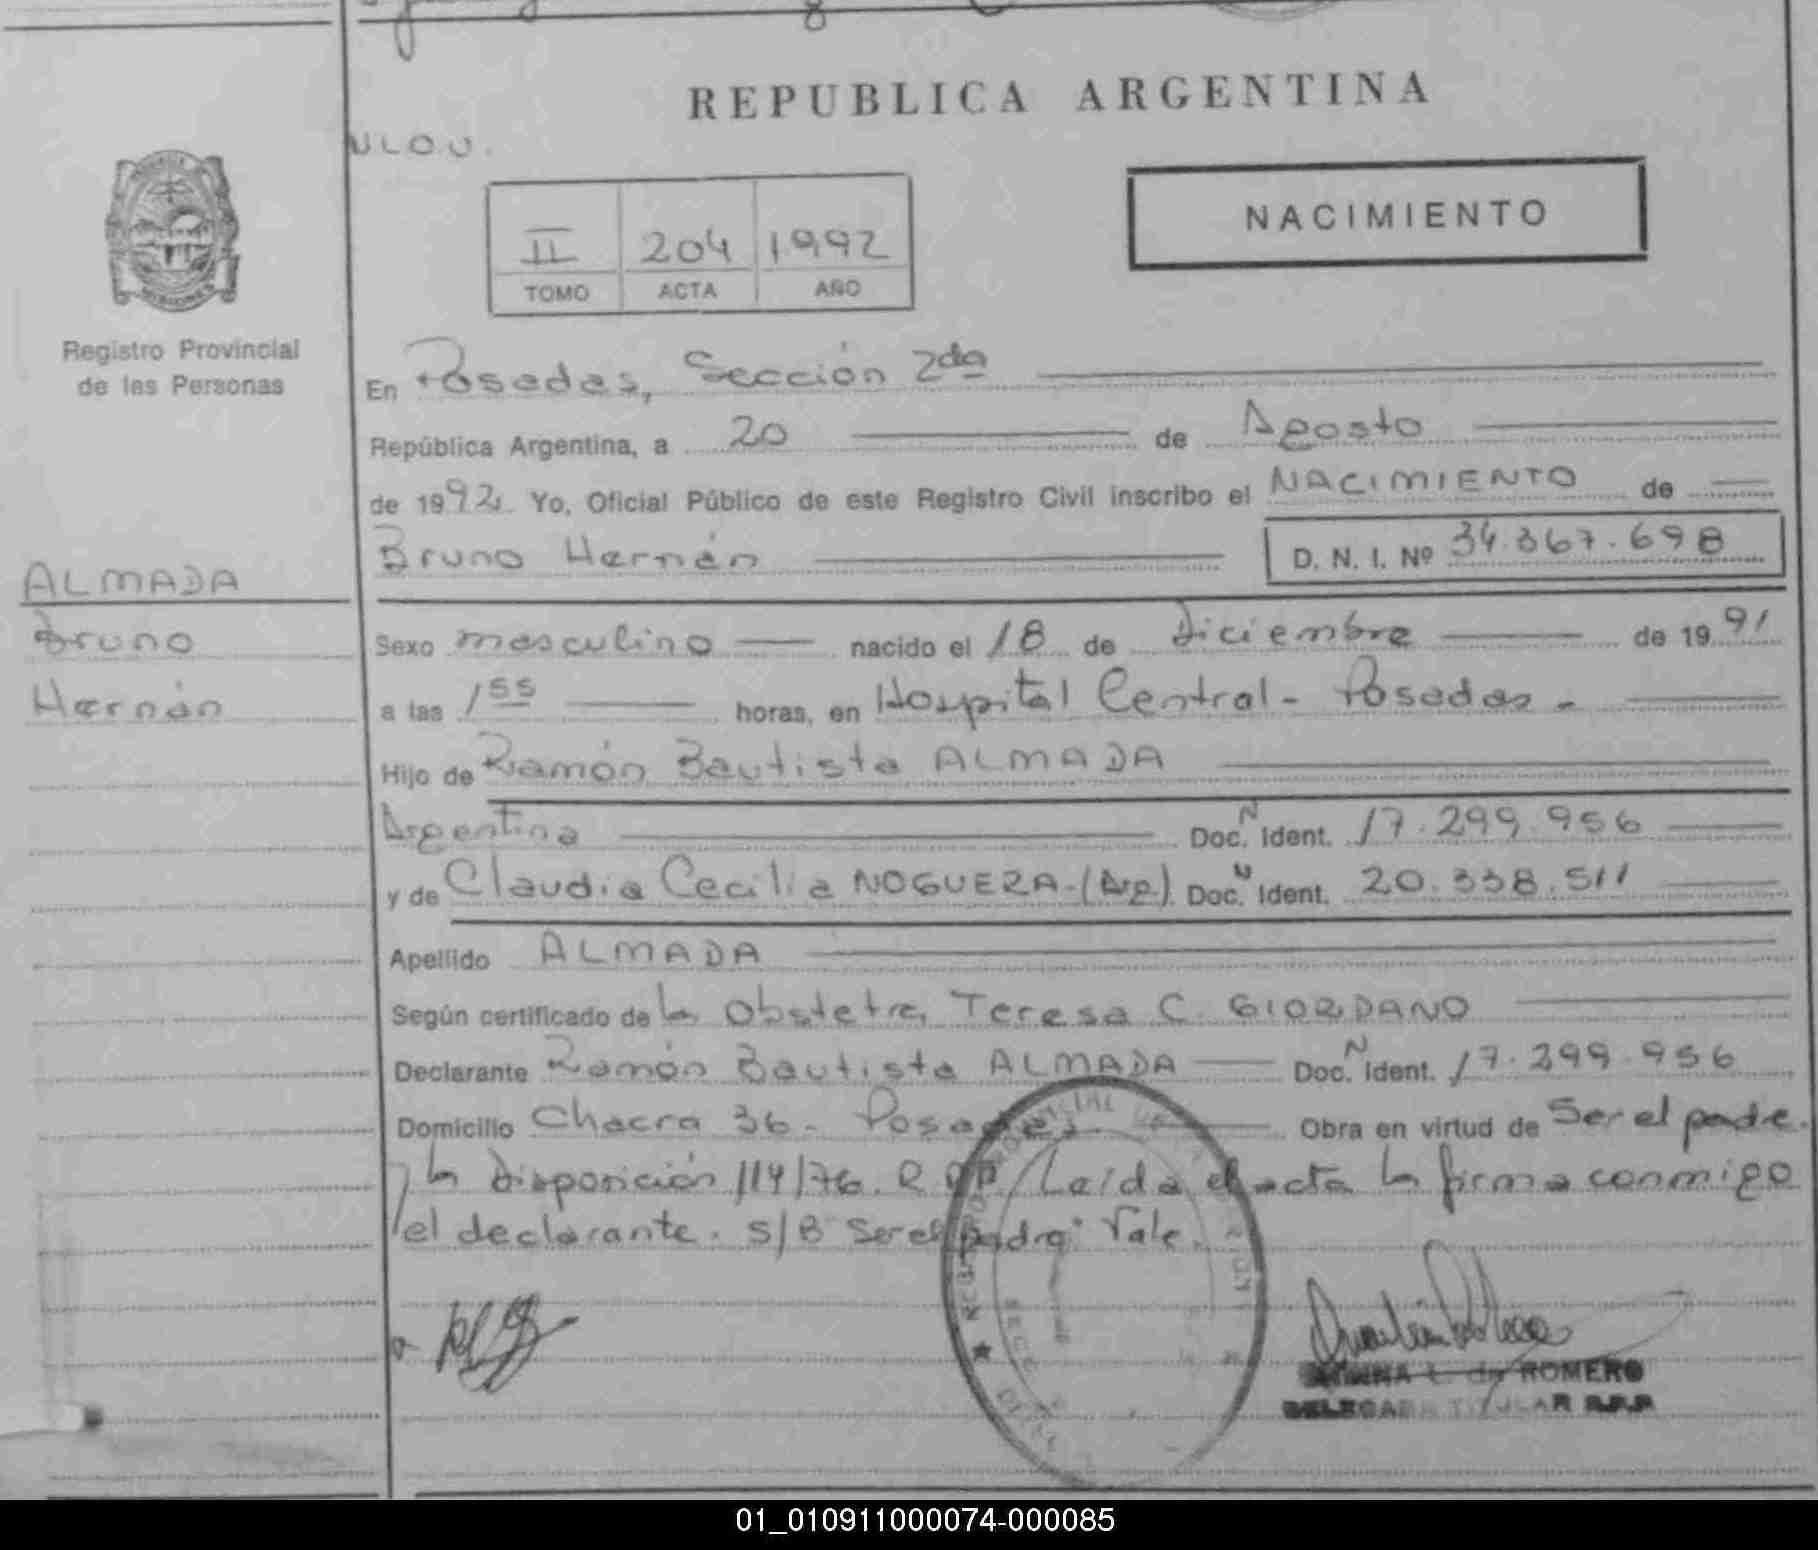 REPUBLICA ARGENTINA
NACIMIENTO
II 204 1992
TOMO ACTA AÑO
MISIONES
Registro Provincial
de las Personas
ALMADA
Bruno
Hernán
En Posadas, Sección 2da
República Argentina, a 20 de Agosto
de 1992 Yo, Oficial Público de este Registro Civil inscribo el NACIMIENTO de
Bruno Hernán D. N. I. Nº 34.367.698
Sexo masculino nacido el 18 de Diciembre de 1991
a las 1 55 horas, en Hospital Central - Posadas -
Hijo de Ramón Bautista ALMADA
Argentina Doc. N Ident. 17.299.956
y de Claudia Cecilia NOGUERA - (Arg.) Doc. N Ident. 20.338.511
Apellido ALMADA
Según certificado de la Obstetra, Teresa C. GIORDANO
Declarante Ramón Bautista ALMADA Doc. N Ident. 17.299.956
Domicilio Chacra 36 - Posadas - Obra en virtud de Ser el padre.
y la Disposición 114/76. R.P.P. Leída el acta la firma conmigo
el declarante. S/B "Ser el padre" Vale.
L. de ROMERO
DELEGADA TITULAR R.P.P
01_010911000074-000085